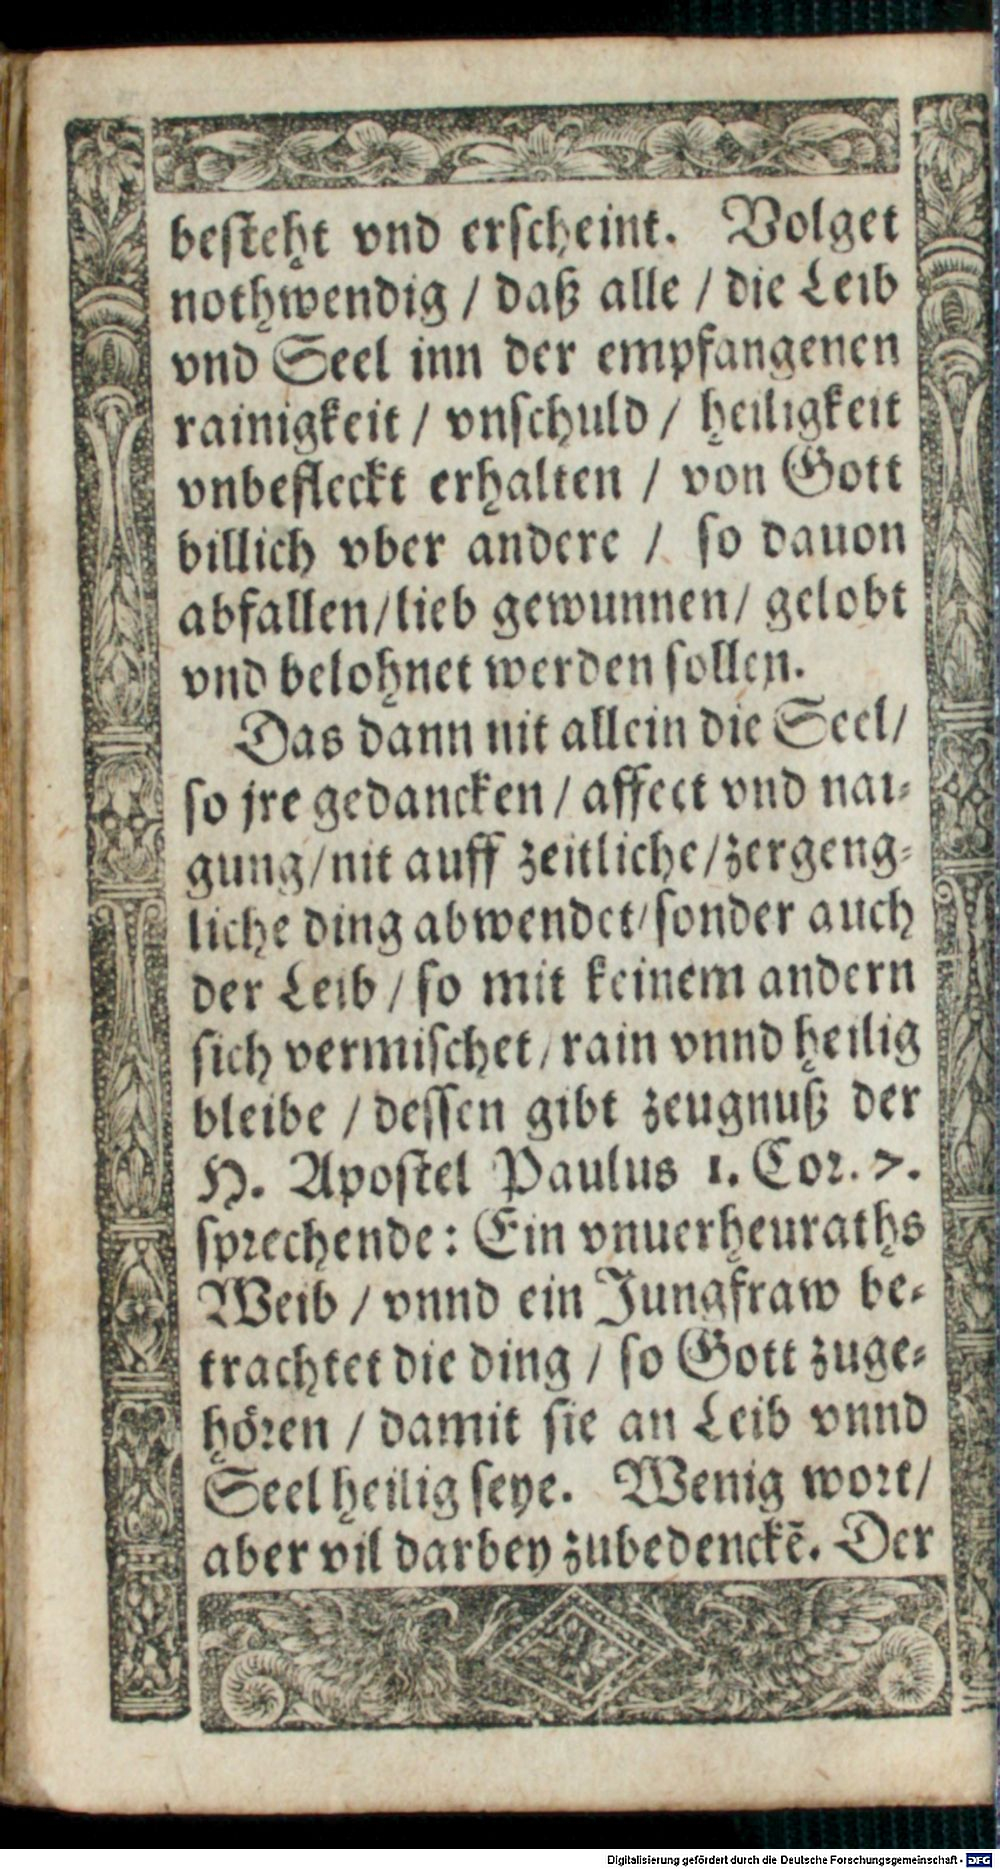 besteht vnd erscheint. Volget
nothwendig / daß alle / die Leib
vnd Seel inn der empfangenen
rainigkeit / vnschuld / heiligkeit
vnbefleckt erhalten / von Gott
billich vber andere / so dauon
abfallen/lieb gewunnen/ gelobt
vnd belohnet werden sollen.
Das dann nit allein die Seel/
so jre gedancken / affect vnd nai⸗
gung/nit auff zeitliche/zergeng⸗
liche ding abwendet/sonder auch
der Leib / so mit keinem andern
sich vermischet/rain vnnd heilig
bleibe / dessen gibt zeugnuß der
H. Apostel Paulus 1. Cor. 7.
sprechende: Ein vnuerheuraths
Weib / vnnd ein Jungfraw be⸗
trachtet die ding / so Gott zuge⸗
hören / damit sie an Leib vnnd
Seel heilig seye. Wenig wort/
aber vil darbey zubedenckē. Der
Digitalisierung gefördert durch die Deutsche Forschungsgemeinschaft - DFG